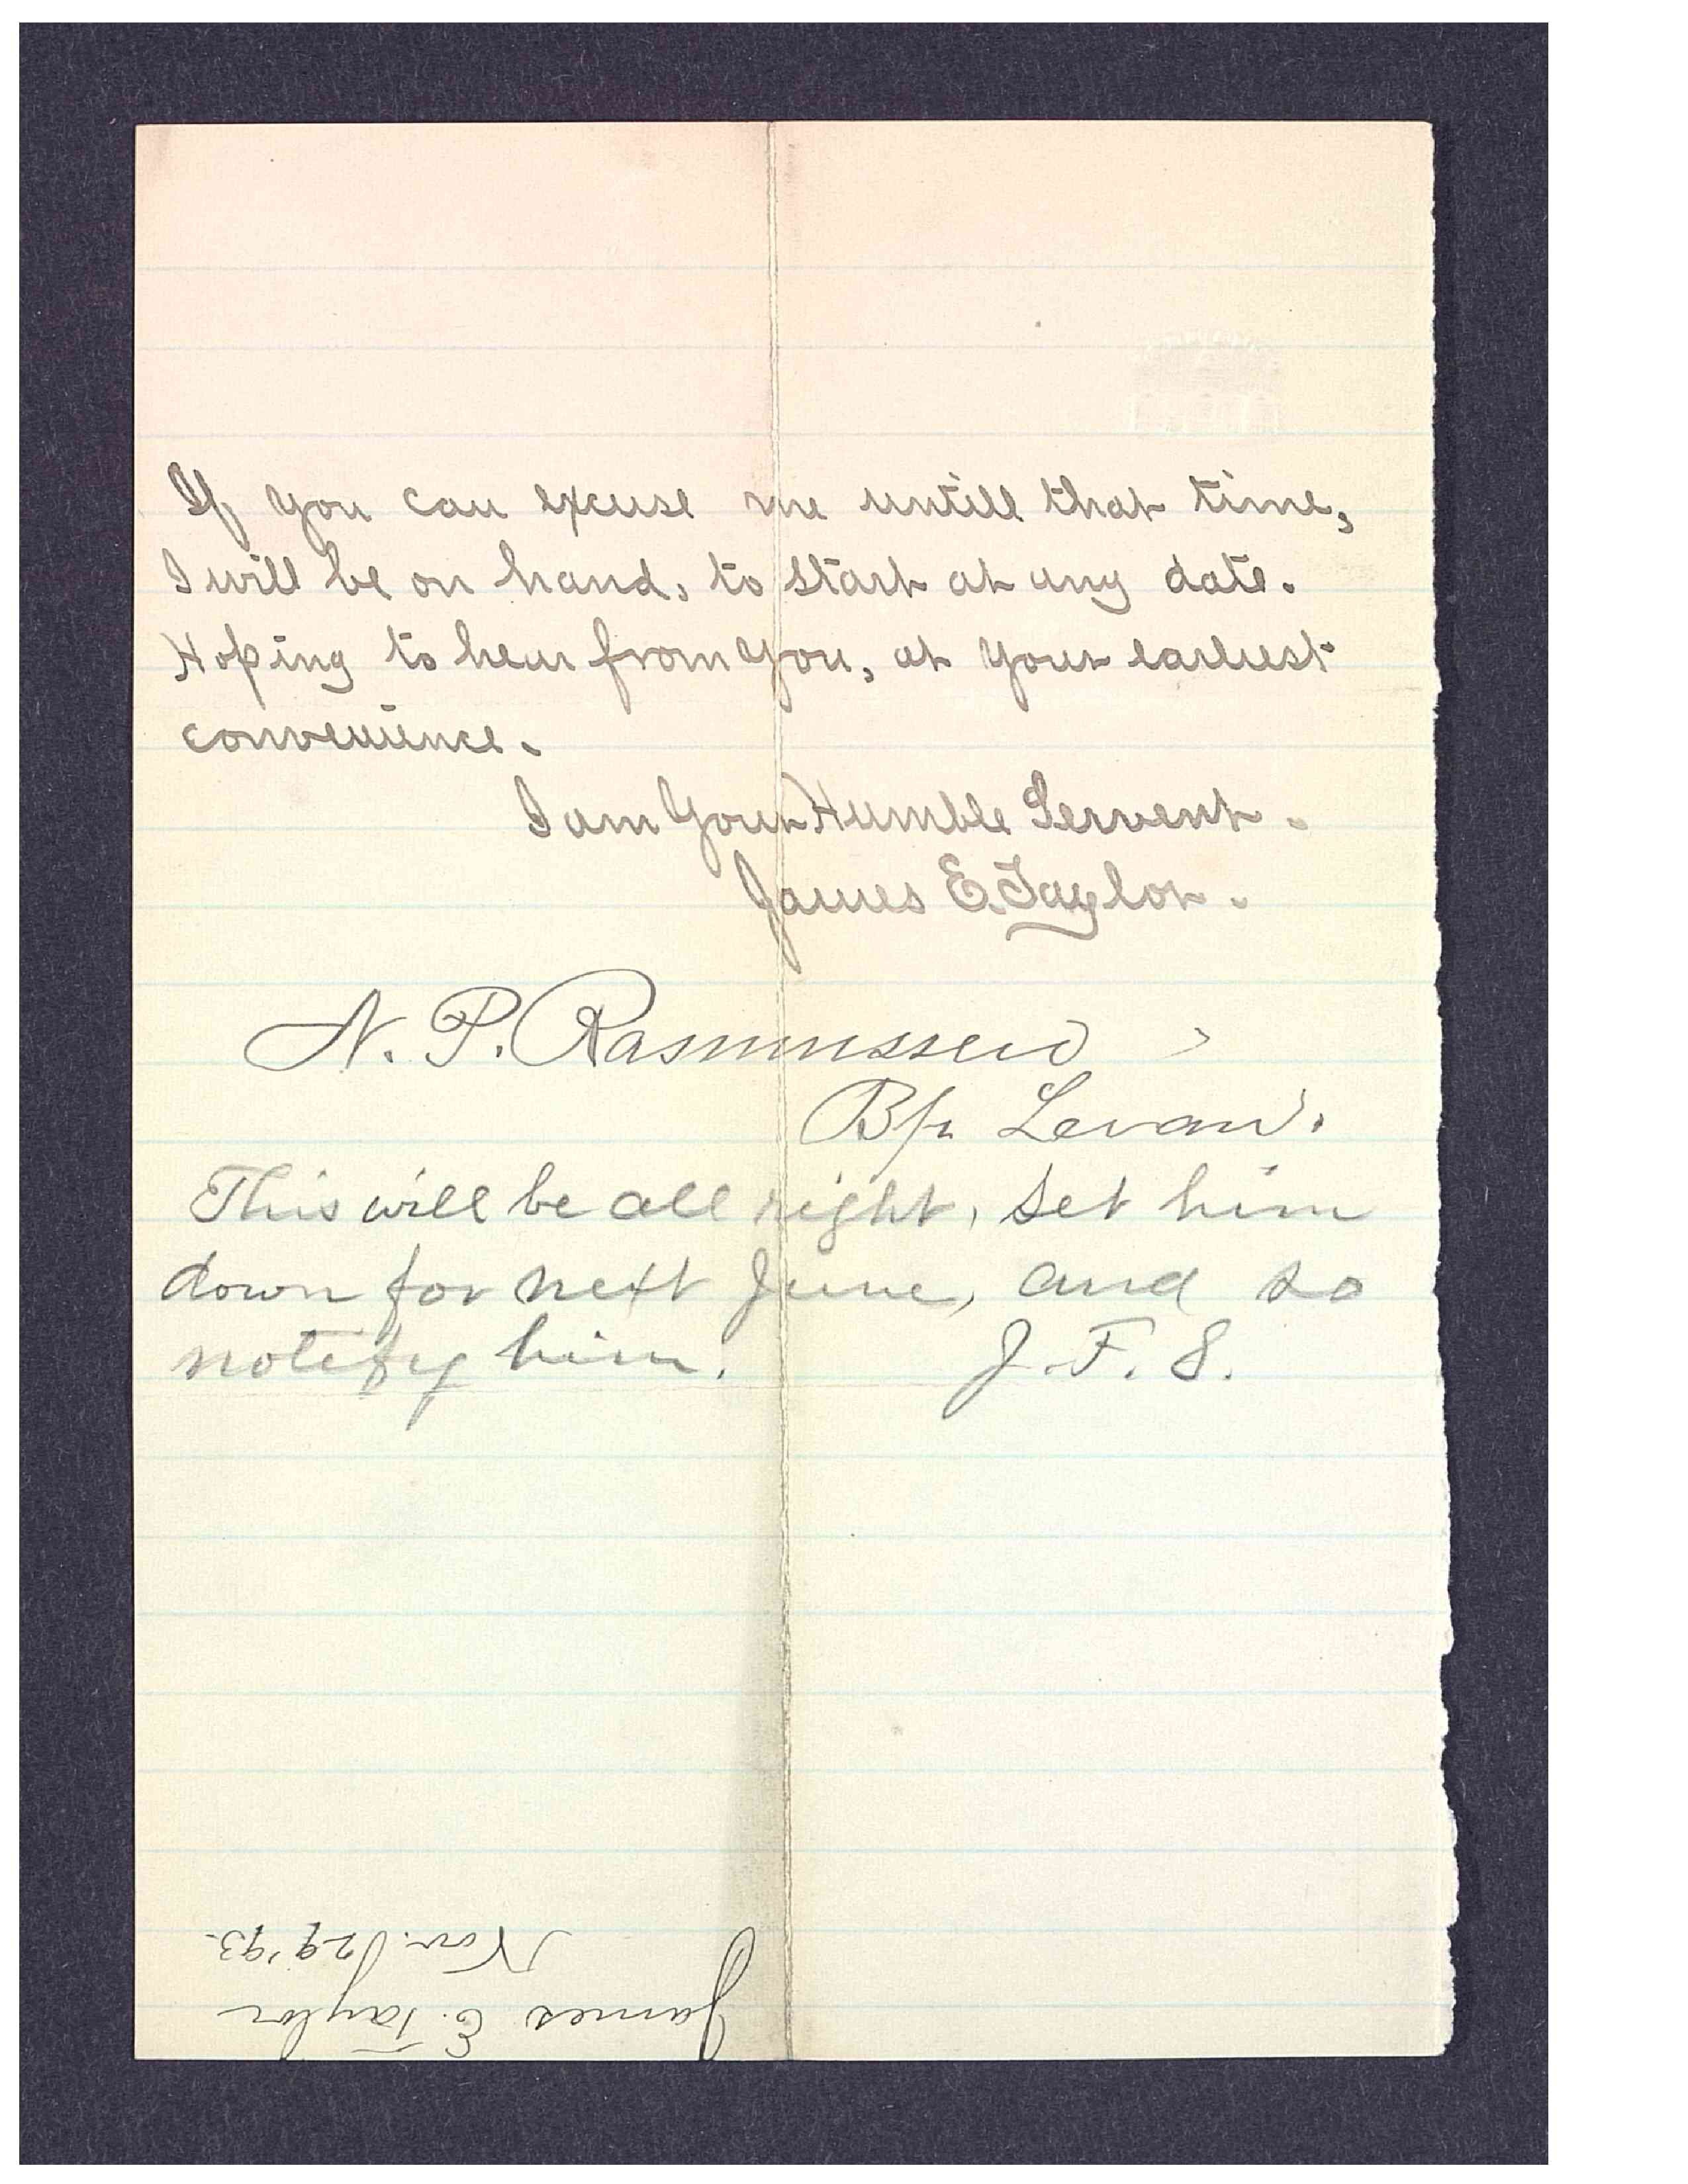 If you can excuse me untill that time,
I will be on hand, to start at any date.
Hoping to hear from you, at your earliest
convenience.
I am Your Humble Servent.
James E. Taylor.
N. P. Rasmussen
Bp Levan.
This will be all right, set him
down for next June, and so
notify him. J. F. S.
James E. Taylor
Nov. 29 '93.